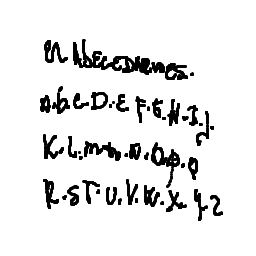 un Abecedarios.
A.b.c.D.E.F.G.H.I.J.
K.L.m.n.o.O.p.Q
R.S.T.U.V.W.X.Y.Z